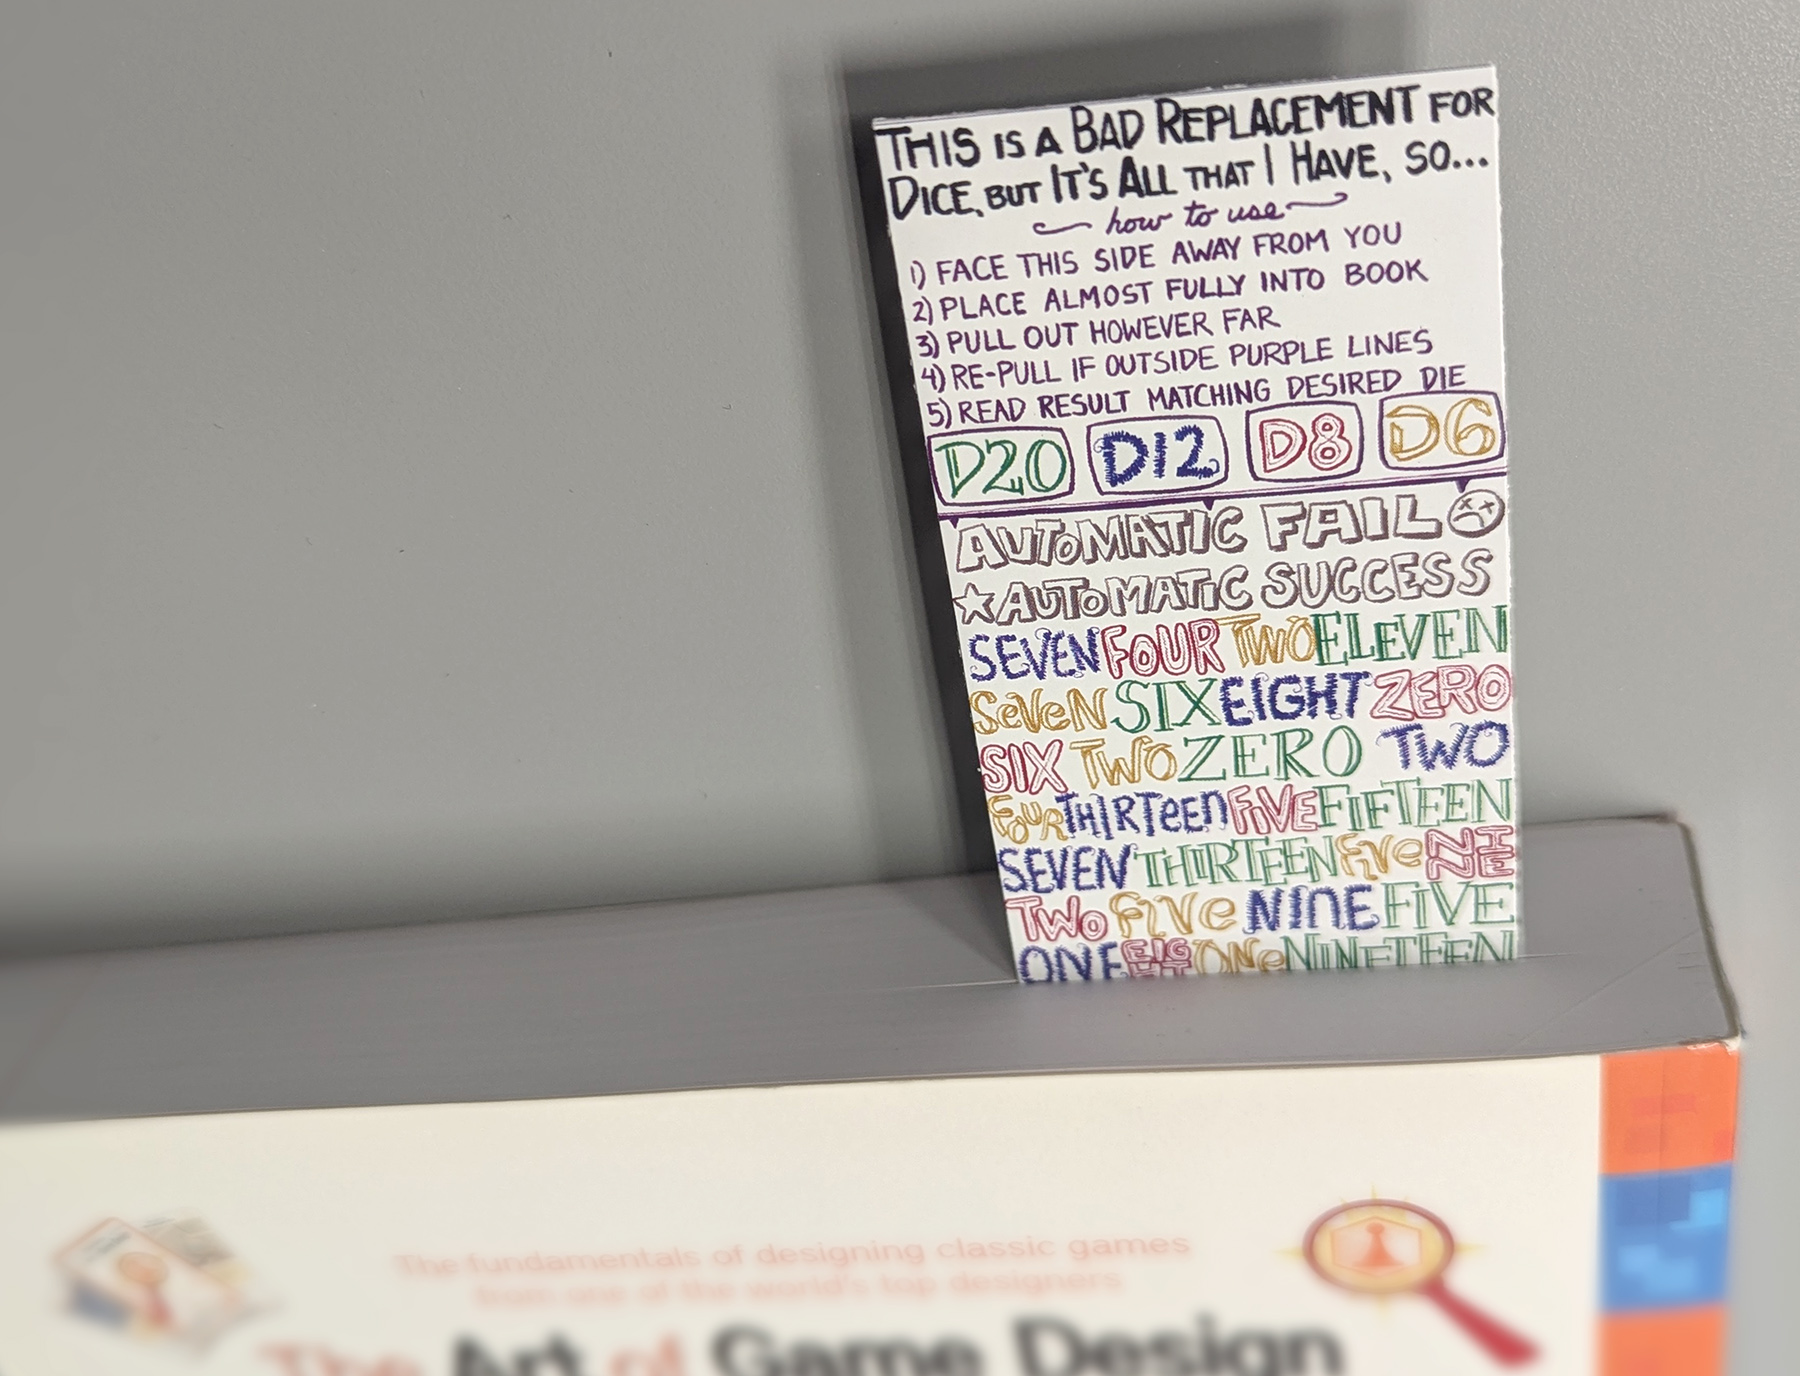 THIS IS A BAD REPLACEMENT FOR
DICE, BUT IT'S ALL THAT I HAVE, SO...
how to use
1) FACE THIS SIDE AWAY FROM YOU
2) PLACE ALMOST FULLY INTO BOOK
3) PULL OUT HOWEVER FAR
4) RE-PULL IF OUTSIDE PURPLE LINES
5) READ RESULT MATCHING DESIRED DIE
D20 D12 D8 D6
AUTOMATIC FAIL
AUTOMATIC SUCCESS
SEVEN FOUR TWO ELEVEN
SeVeN SIX EIGHT ZERO
SIX TWO ZERO TWO
FOUR THIRTeen FiVE FIFTEEN
SEVEN THIRTEEN FiVe NINE
TWO FiVe NINE FIVE
ONE EIGHT ONe NINETEEN
The fundamentals of designing classic games
from one of the world's top designers
The Art of Game Design